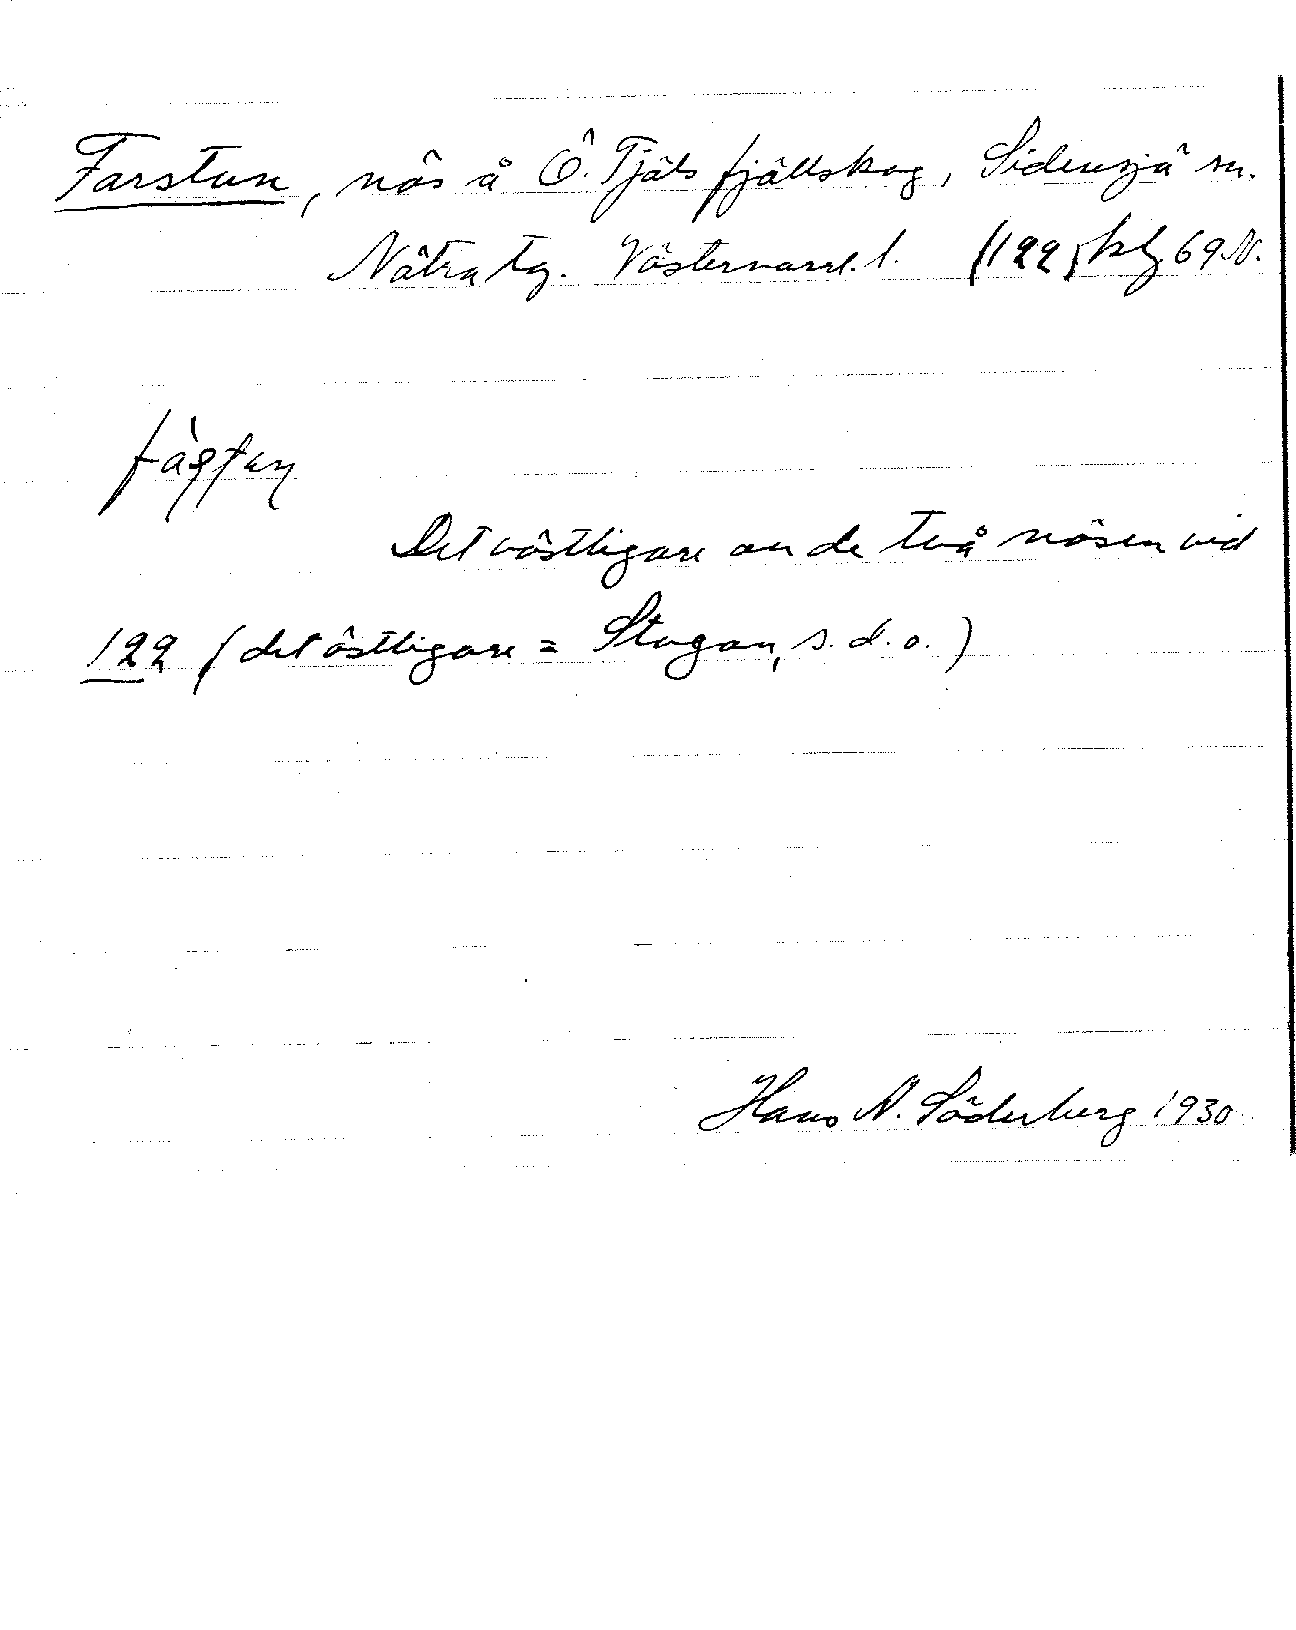 Farstun, näs å Ö. Tjäls fjällskog, Sidensjö sn.
Nätra tg. Västernorrl. l. (122) kbl 69 N.
Det västligare av de två näsen vid
122 (det östligare = Stugan, s. d. o.)
Hans N. Söderberg 1930